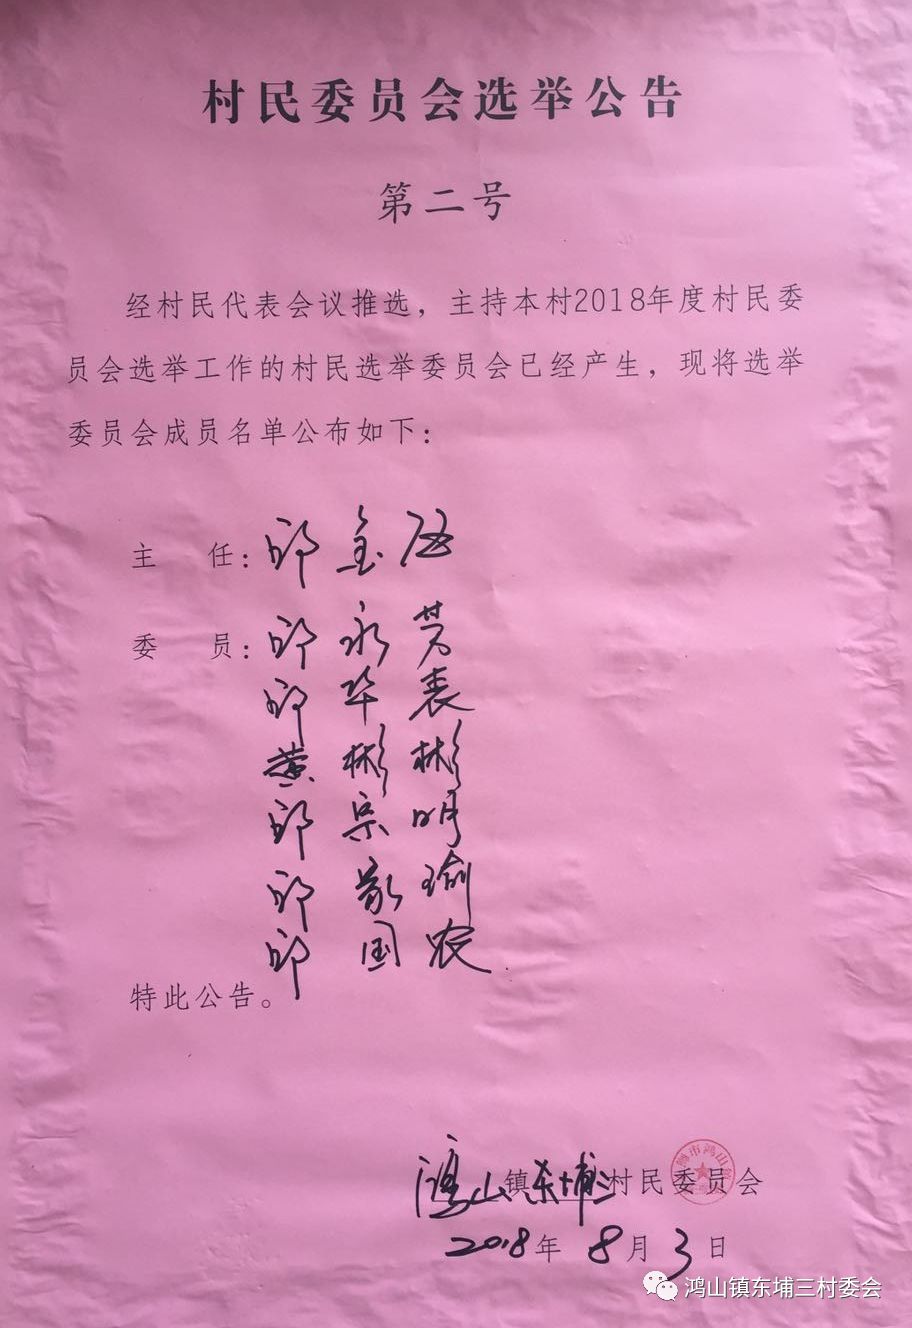 村民委员会选举公告
第二号
经村民代表会议推选，主持本村2018年度村民委
员会选举工作的村民选举委员会已经产生，现将选举
委员会成员名单公布如下：
主 任：邱金伍
委 员：邱永艺
邱华表
黄彬彬
邱宗明
邱家瑜
邱国农
特此公告。
鸿山镇东埔三村民委员会
2018年8月3日
鸿山镇东埔三村委会